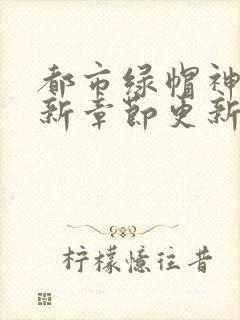 都市绿帽神
新章节更新
柠檬忆往昔